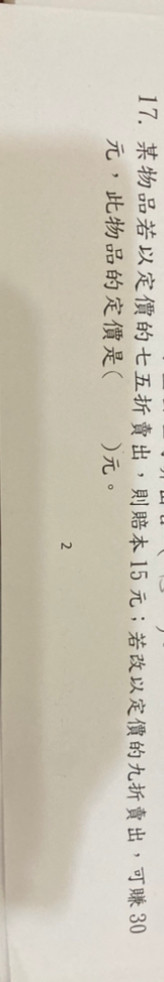 17. 某物品若以定價的七五折賣出，則賠本15元；若改以定價的九折賣出，可賺30
元，此物品的定價是(    )元。
2